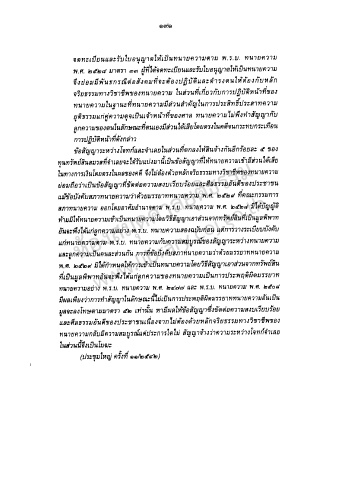 ๑๙๑
จดทะเบียนและรับใบอนุญาตให้เป็นทนายความตาม พ.ร.บ. ทนายความ
พ.ศ. ๒๕๒๘ มาตรา ๓๓ ผู้ที่ได้จดทะเบียนและรับใบอนุญาตให้เป็นทนายความ
จึงย่อมมีพันธกรณีต่อสังคมที่จะต้องปฏิบัติและดำรงตนให้ต้องกับหลัก
จริยธรรมทางวิชาชีพของทนายความ ในส่วนที่เกี่ยวกับการปฏิบัติหน้าที่ของ
ทนายความในฐานะที่ทนายความมีส่วนสำคัญในการประสิทธิ์ประสาทความ
ยุติธรรมแก่คู่ความดุจเป็นเจ้าหน้าที่ของศาล ทนายความไม่พึงทำสัญญากับ
ลูกความของตนในลักษณะที่ตนเองมีส่วนได้เสียโดยตรงในคดีจนกระทบกระเทือน
การปฏิบัติหน้าที่ดังกล่าว
ข้อสัญญาระหว่างโจทก์และจำเลยในส่วนที่ตกลงให้สินจ้างกันอีกร้อยละ ๕ ของ
ทุนทรัพย์สินสมรสที่จำเลยจะได้รับแบ่งมานี้เป็นข้อสัญญาที่ให้ทนายความเข้ามีส่วนได้เสีย
ในทางการเงินโดยตรงในผลของคดี จึงไม่ต้องด้วยหลักจริยธรรมทางวิชาชีพของทนายความ
ย่อมถือว่าเป็นข้อสัญญาที่ขัดต่อความสงบเรียบร้อยและศีลธรรมอันดีของประชาชน
แม้ข้อบังคับสภาทนายความว่าด้วยมรรยาททนายความ พ.ศ. ๒๕๒๙ ที่คณะกรรมการ
สภาทนายความ ออกโดยอาศัยอำนาจตาม พ.ร.บ. ทนายความ พ.ศ. ๒๕๒๘ มิได้บัญญัติ
ห้ามมิให้ทนายความเข้าเป็นทนายความโดยวิธีสัญญาเอาส่วนจากทรัพย์สินที่เป็นมูลพิพาท
อันจะพึงได้แก่ลูกความอย่าง พ.ร.บ. ทนายความสองฉบับก่อน แต่การวางระเบียบบังคับ
แก่ทนายความตาม พ.ร.บ. ทนายความกับความสมบูรณ์ของสัญญาระหว่างทนายความ
และลูกความเป็นคนละส่วนกัน การที่ข้อบังคับสภาทนายความว่าด้วยมรรยาททนายความ
พ.ศ. ๒๕๒๙ มิได้กำหนดให้การเข้าเป็นทนายความโดยวิธีสัญญาเอาส่วนจากทรัพย์สิน
ที่เป็นมูลพิพาทอันจะพึงได้แก่ลูกความของทนายความเป็นการประพฤติผิดมรรยาท
ทนายความอย่าง พ.ร.บ. ทนายความ พ.ศ. ๒๔๗๗ และ พ.ร.บ. ทนายความ พ.ศ. ๒๕๐๘
มีผลเพียงว่าการทำสัญญาในลักษณะนี้ไม่เป็นการประพฤติผิดมรรยาททนายความอันเป็น
มูลจะลงโทษตามมาตรา ๕๒ เท่านั้น หามีผลให้ข้อสัญญาซึ่งขัดต่อความสงบเรียบร้อย
และศีลธรรมอันดีของประชาชนเนื่องจากไม่ต้องด้วยหลักจริยธรรมทางวิชาชีพของ
ทนายความกลับมีความสมบูรณ์แต่ประการใดไม่ สัญญาจ้างว่าความระหว่างโจทก์จำเลย
ในส่วนนี้จึงเป็นโมฆะ
(ประชุมใหญ่ ครั้งที่ ๑๑/๒๕๔๒)